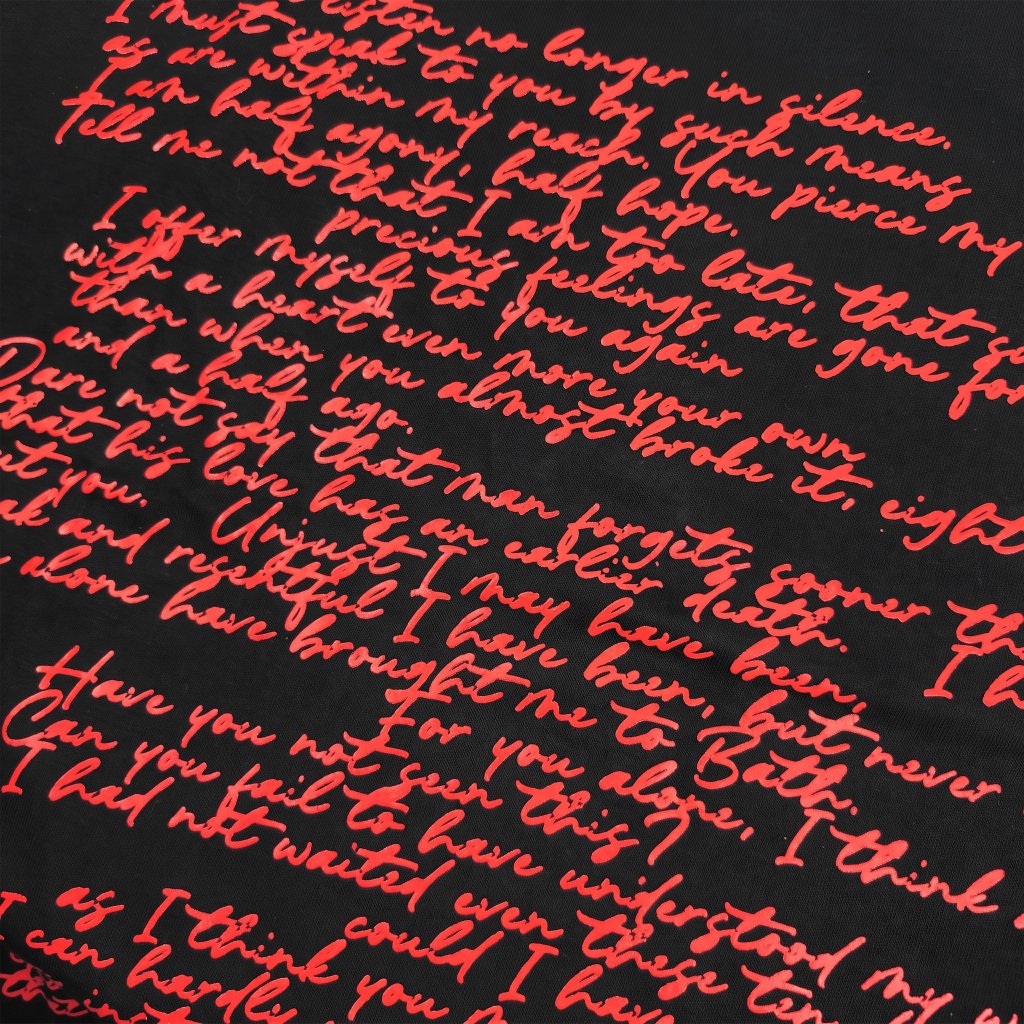 listen no longer in silence.
I must speak to you by such means
as are within my reach. You pierce my
I am half agony, half hope.
Tell me not that I am too late, that
precious feelings are gone for
I offer myself to you again
with a heart even more your own
than when you almost broke it, eight
and a half ago.
Dare not say that man forgets sooner
that his love has an earlier death. I
you. Unjust I may have been,
and resentful I have been, but never
alone have brought me to Bath.
For you alone, I think
Have you not seen this?
Can you fail to have understood my
I had not waited even these ten
could I have
as I think you
I can hardly